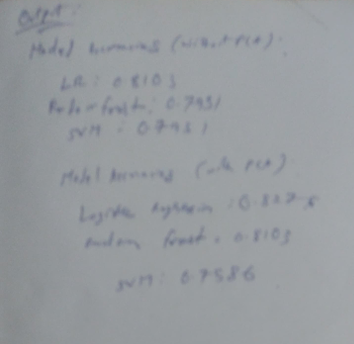 Output:
Model Accuracy (without PCA):
LR: 0.8103
Random forest: 0.7931
SVM: 0.7931
Model Accuracy (with PCA)
Logistic Regression: 0.827
random forest: 0.8103
SVM: 0.7586